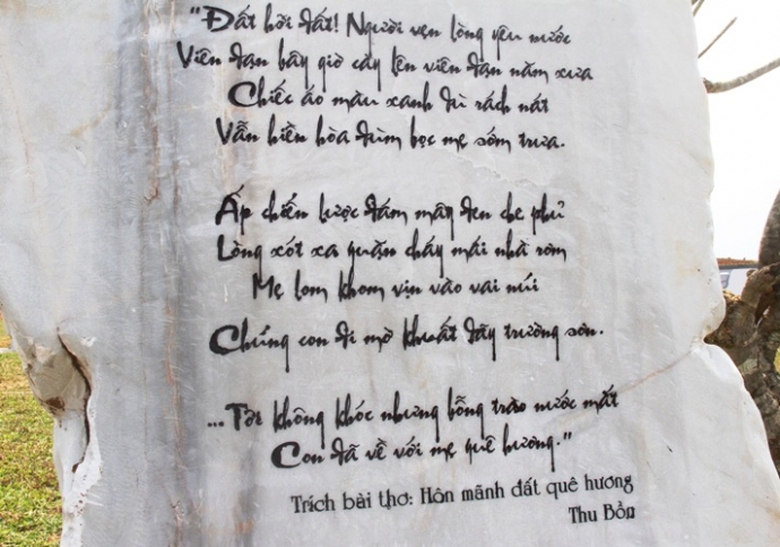 "Đất hỡi đất! Người vẹn lòng yêu nước
Viên đạn bây giờ cày lên viên đạn năm xưa
Chiếc áo màu xanh dù rách nát
Vẫn hiền hòa đùm bọc mẹ sớm trưa.
Ấp chiến lược đám mây đen che phủ
Lòng xót xa quặn cháy mái nhà rơm
Mẹ lom khom vịn vào vai núi
Chúng con đi mờ khuất dãy trường sơn.
...Tôi không khóc nhưng bỗng trào nước mắt
Con đã về với mẹ quê hương."
Trích bài thơ: Hôn mãnh đất quê hương
Thu Bồn